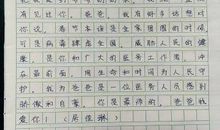 有见过你。爸爸，我有好多话想对
你说。春节本该是全家团圆的时候，
可是病毒肆虐全国，威胁人民的健
康，是你和广大的医务工作者，冲
在最前面，用生命和时间为人民守
护。我为爸爸是一位医务人员感到
骄傲和自豪，你是最棒的，爸爸我
爱你！（居俊琳）